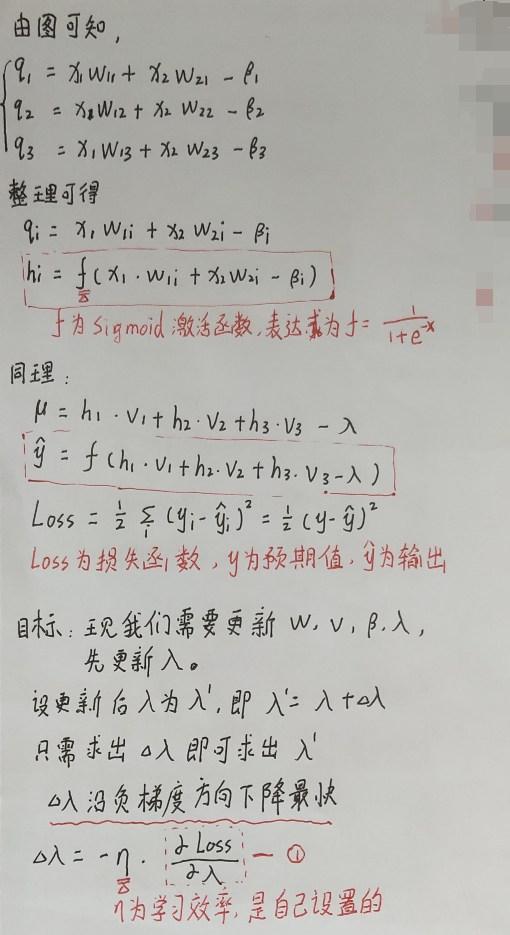 由图可知,
q₁ = x₁w₁₁ + x₂w₂₁ - β₁
q₂ = x₁w₁₂ + x₂w₂₂ - β₂
q₃ = x₁w₁₃ + x₂w₂₃ - β₃
整理可得
qᵢ = x₁w₁ᵢ + x₂w₂ᵢ - βᵢ
hᵢ = f(x₁·w₁ᵢ + x₂w₂ᵢ - βᵢ)
f为Sigmoid激活函数,表达式为f = 1/(1+e^-x)
同理:
μ = h₁·v₁ + h₂·v₂ + h₃·v₃ - λ
ŷ = f(h₁·v₁ + h₂·v₂ + h₃·v₃ - λ)
Loss = ½ Σᵢ (yᵢ - ŷᵢ)² = ½ (y - ŷ)²
Loss为损失函数,y为预期值,ŷ为输出
目标:现我们需要更新 w, v, β, λ,
先更新λ。
设更新后λ为λ',即 λ' = λ + Δλ
只需求出Δλ即可求出λ'
Δλ沿负梯度方向下降最快
Δλ = -η · ∂Loss/∂λ — ①
η为学习效率,是自己设置的